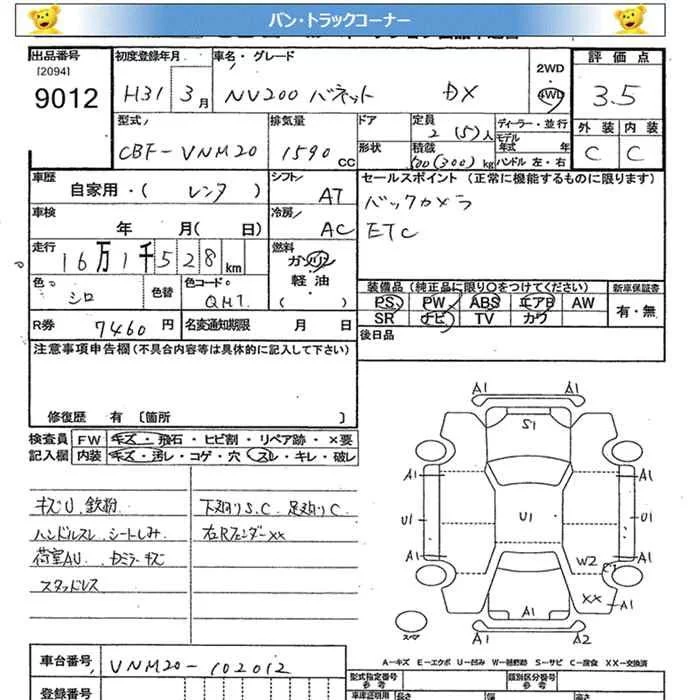 バン・トラックコーナー
出品番号
[2094]
9012
初度登録年月
H31 3月
車名・グレード
NV200 バネット DX
2WD
・
4WD
評価点
3.5
外装 内装
C C
型式
CBF-VNM20
排気量
1590 CC
ドア
形状
定員
2 (5) 人
積載
500 (300) kg
ディーラー・並行
モデル
年式 年
ハンドル 左・右
車歴
自家用・( レンタ )
シフト
AT
セールスポイント (正常に機能するものに限ります)
バックカメラ
ETC
車検
年 月( 日)
冷房
AC
走行
16万1千528km
燃料
ガソリン
軽油
・
( )
色
シロ
色替
色コード
QM1
装備品 (純正品に限り○をつけてください)
新車保証書
PS PW ABS エアB AW
SR ナビ TV カワ
有・無
R券 7460 円
名変通知期限 月 日
後日品
注意事項申告欄(不具合内容等は具体的に記入して下さい)
修復歴 有 〔箇所 〕
検査員
記入欄
FW キズ・飛石・ヒビ割・リペア跡・×要
内装 キズ・汚レ・コゲ・穴・スレ・キレ・破レ
キズU 鉄粉
ハンドルスレ シートしみ
荷室AU
スタッドレス
下廻りS.C 足廻りC
右Rフェンダーxx
A1 A1
S1
A1 A1
U1 U1 U1
A1 A1
W2
C1
XX
A1
A1
A1 A2
スペア
A―キズ E―エクボ U―凹み W―補修跡 S―サビ C―腐食 XX―交換済
車台番号
VNM20-102012
登録番号
型式指定番号
参考
類別区分番号
参考
車庫証明用
長さ
幅
高さ